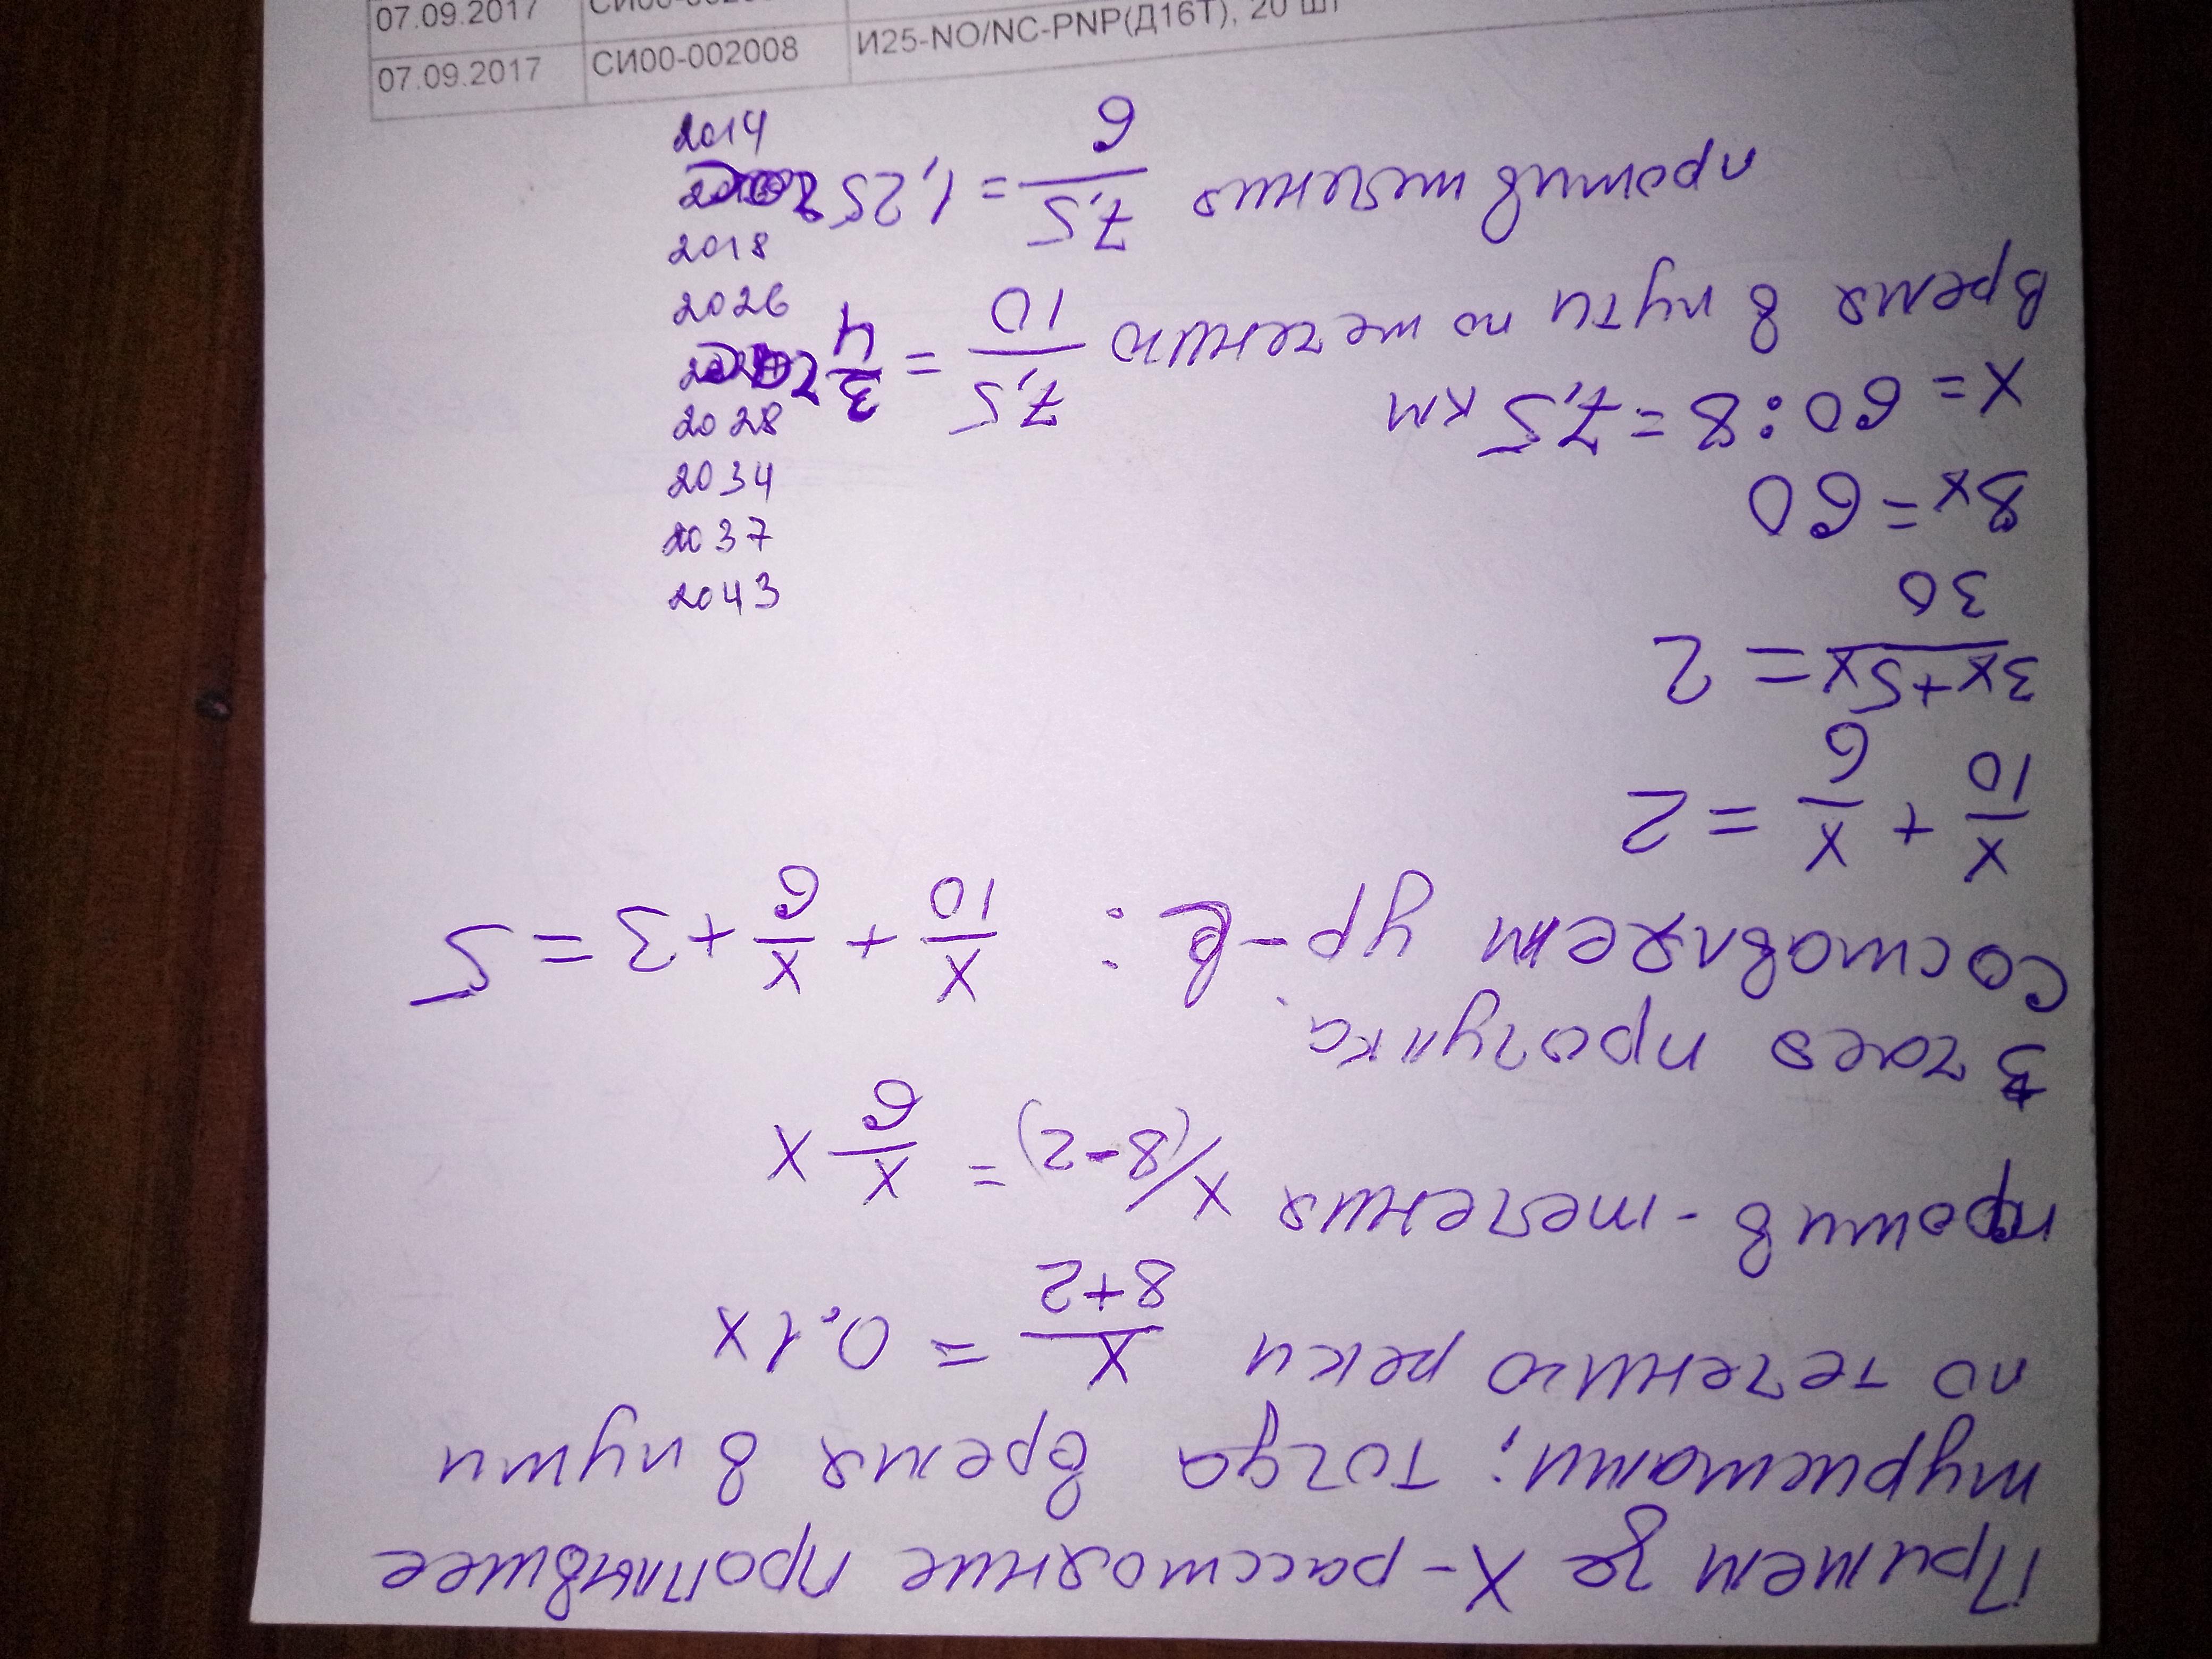 Примем за X - расстояние проплывшее
туристами; тогда время в пути
по течению реки X/(8+2) = 0,1x
против - течения x/(8-2) = x/6 x
3 часа прогулка
Составляем ур-е: x/10 + x/6 + 3 = 5
x/10 + x/6 = 2
(3x+5x)/30 = 2
8x = 60
x = 60:8 = 7,5 км
Время в пути по течению 7,5/10 = 3/4
против течения 7,5/6 = 1,25
07.09.2017
07.09.2017 СИ00-002008 И25-NO/NC-PNP(Д16Т), 20 шт
2014
2018
2026
2028
2034
2037
2043